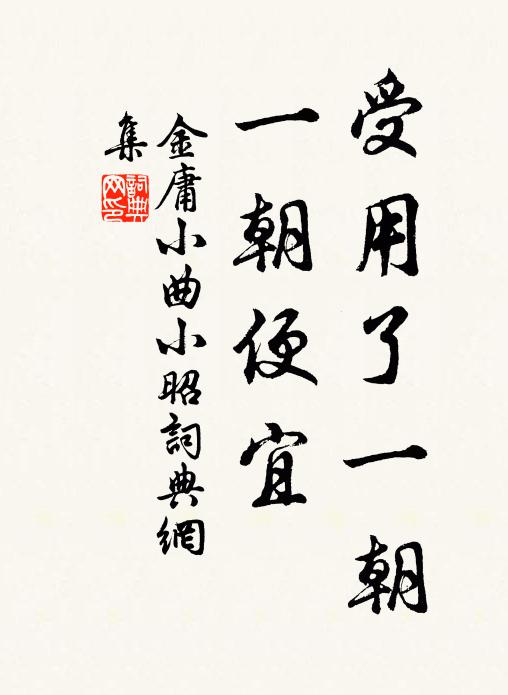 受用了一朝
一朝便宜
金庸小曲小昭詞典網
集
詞典
网印